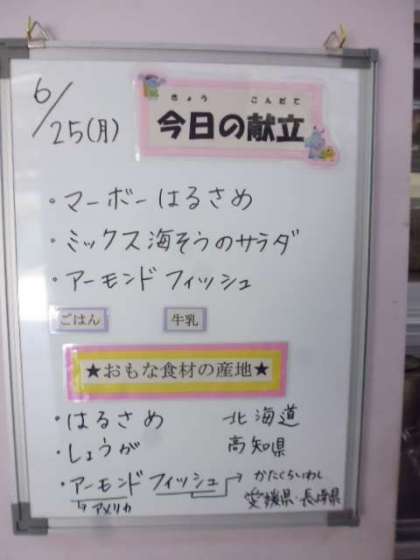 6/25(月)
きょう こんだて
今日の献立
・マーボーはるさめ
・ミックス海そうのサラダ
・アーモンドフィッシュ
ごはん 牛乳
★おもな食材の産地★
・はるさめ 北海道
・しょうが 高知県
・アーモンドフィッシュ → かたくちいわし
↳アメリカ 愛媛県・長崎県